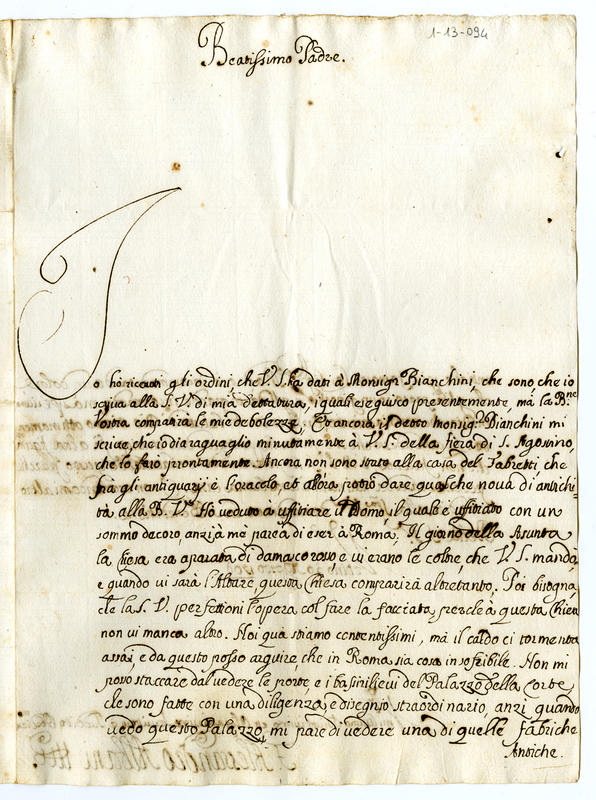 1-13-094
Beatissimo Padre.
Io hò riceuti gli ordini, che V. S. ha dati à Monsigr Bianchini, che sono che io
scriua alla S. V. di mia dettatura, i quali eseguisco presentemente, mà la Bne
Vostra compatirà le mie debolezze. Et ancora il detto Monsigr Bianchini mi
scriue, che io dia raguaglio minutamente à V. S. della fiera di S. Agostino,
che lo farò prontamente. Ancora non sono stato alla casa del Fabretti che
frà gli antiquarj è l'oracolo, et allora potrò dare qualche noua di antichi-
tà alla B. V. Hò veduto à uffitiare il Domo, il quale è uffitiato con un
sommo decoro, anzi à mè parea di eser à Roma. Il giorno della Asunta
la chiesa era aparata di damasco roso, e vi erano le coltre, che V. S. mandò,
e quando vi sarà l'Altare, questa Chiesa comparirà altretanto. Poi bisogna,
che la S. V. perfettioni l'opera col fare la facciata, perche à questa Chiesa
non vi manca altro. Noi quà stiamo contentissimi, mà il caldo ci tormenta
assai, e da questo posso arguire, che in Roma sia cosa insofribile. Non mi
poso staccare dal vedere le porte, e i basirilieui del Palazzo della Corte,
che sono fatte con una diligenza, e disegnio straordinario, anzi quando
uedo questo Palazzo, mi pare di vedere una di quelle fabriche
Antiche.